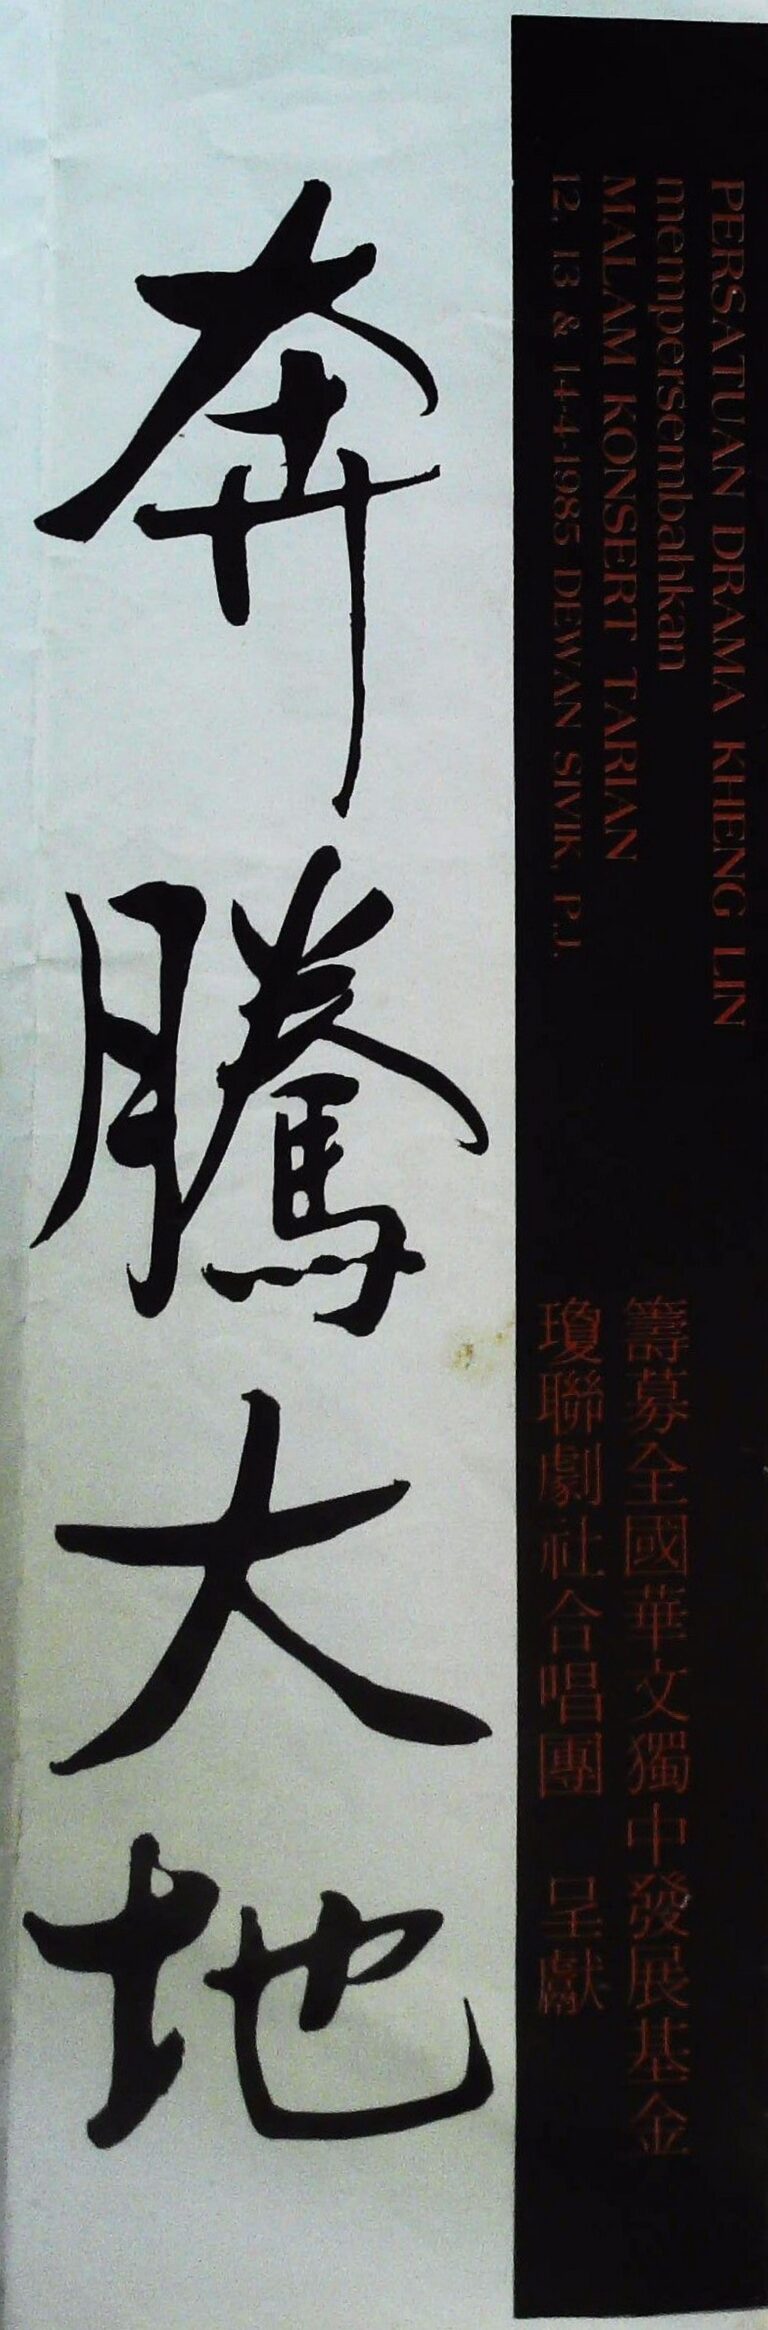 奔騰大地
PERSATUAN DRAMA KHENG LIN
mempersembahkan
MALAM KONSERT TARIAN
12, 13 & 14-4-1985 DEWAN SIVIK, P.J.
籌募全國華文獨中發展基金
瓊聯劇社合唱團 呈獻